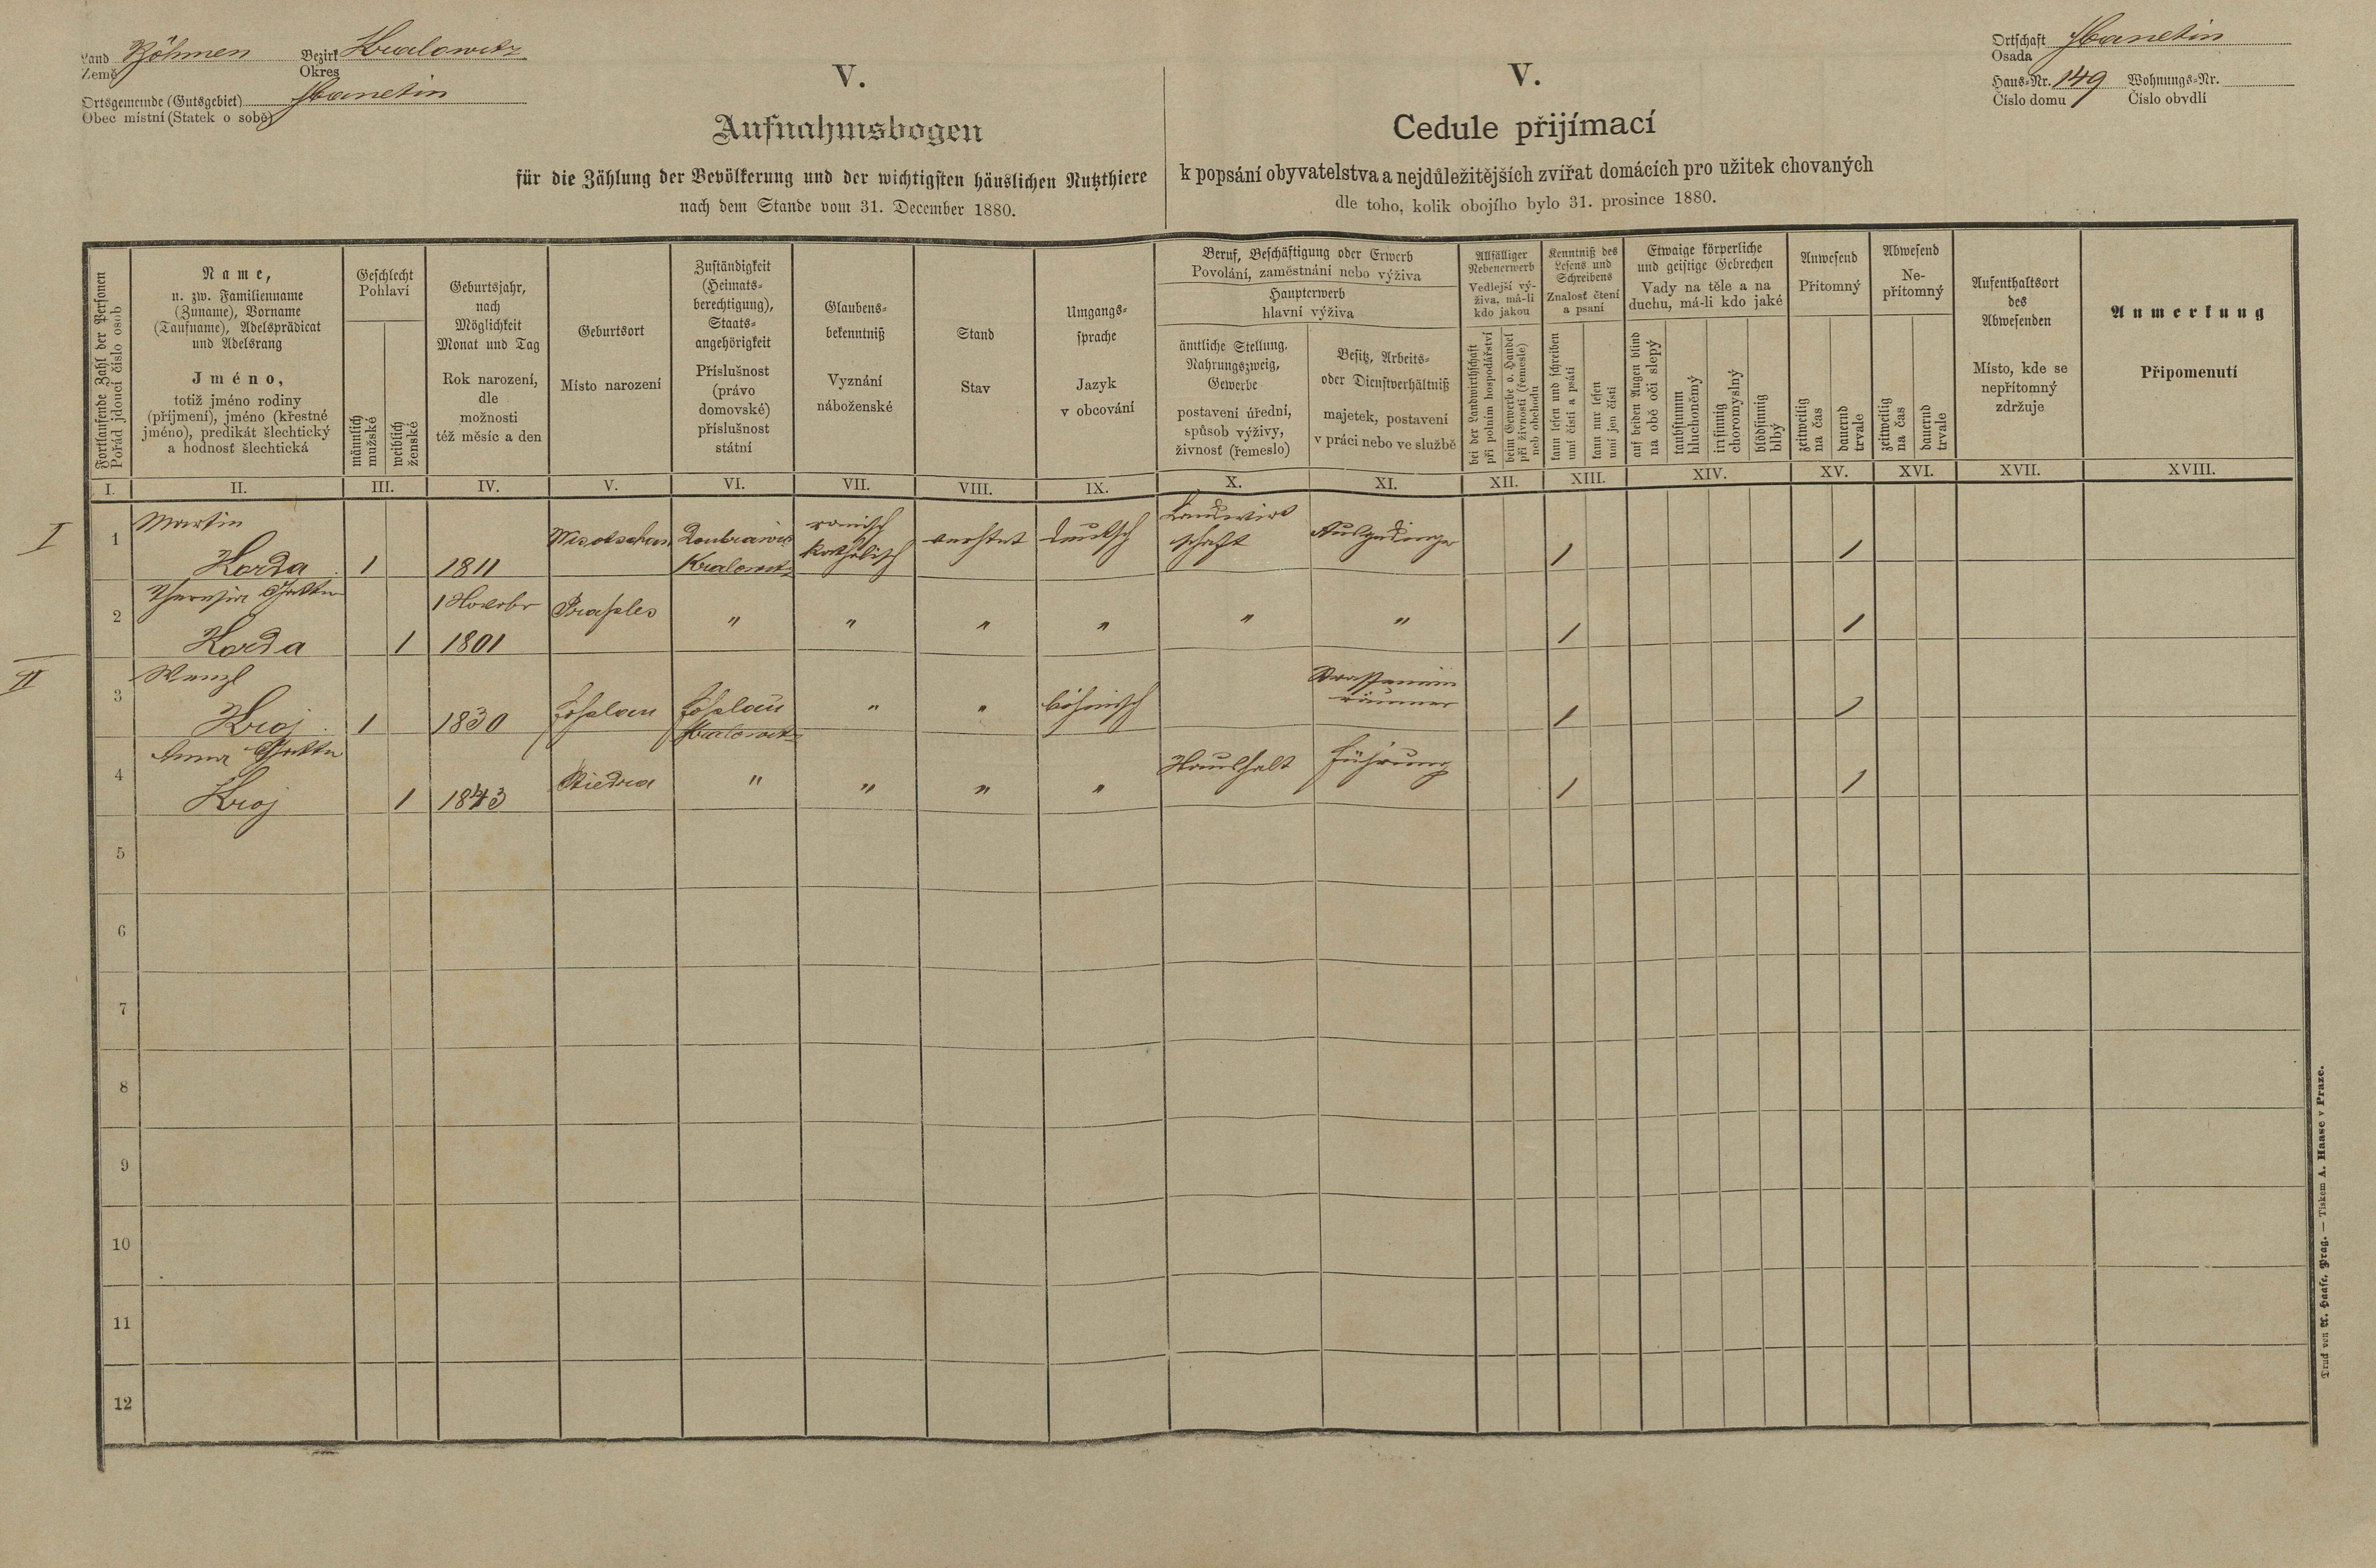 Land Böhmen Bezirk Kralowitz
Země Okres
Ortsgemeinde (Gutsgebiet) Manetin
Obec místní (Statek o sobě)
V.
Aufnahmsbogen
für die Zählung der Bevölkerung und der wichtigsten häuslichen Nutzthiere
nach dem Stande vom 31. December 1880.
V.
Cedule přijímací
k popsání obyvatelstva a nejdůležitějších zvířat domácích pro užitek chovaných
dle toho, kolik obojího bylo 31. prosince 1880.
Ortschaft Manetin
Osada
Haus-Nr. 149 Wohnungs-Nr.
Číslo domu Číslo obydlí
Fortlaufende Zahl der Personen
Pořád jdoucí číslo osob
Name,
u. zw. Familienname
(Zuname), Vorname
(Taufname), Adelsprädicat
und Adelsrang
Jméno,
totiž jméno rodiny
(příjmení), jméno (křestné
jméno), predikát šlechtický
a hodnosť šlechtická
Geschlecht
Pohlaví
männlich
mužské
weiblich
ženské
Geburtsjahr,
nach
Möglichkeit
Monat und Tag
Rok narození,
dle
možnosti
též měsíc a den
Geburtsort
Místo narození
Zuständigkeit
(Heimats-
berechtigung),
Staats-
angehörigkeit
Příslušnost
(právo
domovské)
příslušnost
státní
Glaubens-
bekenntniß
Vyznání
náboženské
Stand
Stav
Umgangs-
sprache
Jazyk
v obcování
Beruf, Beschäftigung oder Erwerb
Povolání, zaměstnání nebo výživa
Haupterwerb
hlavní výživa
ämtliche Stellung,
Nahrungszweig,
Gewerbe
postavení úřední,
spůsob výživy,
živnosť (řemeslo)
Besitz, Arbeits-
oder Dienstverhältniß
majetek, postavení
v práci nebo ve službě
Allfälliger
Nebenerwerb
Vedlejší vý-
živa, má-li
kdo jakou
bei der Landwirthschaft
při polním hospodářství
beim Gewerbe o. Handel
při živnosti (řemesle)
neb obchodu
Kenntniß des
Lesens und
Schreibens
Znalosť čtení
a psaní
kann lesen und schreiben
umí čísti a psáti
kann nur lesen
umí jen čísti
Etwaige körperliche
und geistige Gebrechen
Vady na těle a na
duchu, má-li kdo jaké
auf beiden Augen blind
na obě oči slepý
taubstumm
hluchoněmý
irrsinnig
choromyslný
blödsinnig
blbý
Anwesend
Přítomný
zeitweilig
na čas
dauernd
trvale
Abwesend
Ne-
přítomný
zeitweilig
na čas
dauernd
trvale
Aufenthaltsort
des
Abwesenden
Místo, kde se
nepřítomný
zdržuje
Anmerkung
Připomenutí
I. II. III. IV. V. VI. VII. VIII. IX. X. XI. XII. XIII. XIV. XV. XVI. XVII. XVIII.
I
1 Martin römisch Landwirt
Korda 1 1811 Kralowitz katholisch deutsch schaft Ausgedinger 1 1
2 Theresia Gattin 1 Novbr
Korda 1 1801 " " " " " " 1 1
II
3 Wenzl
Kroj 1 1830 Kralowitz " " böhmisch räumer 1 1
4 Anna Gattin Haushalt führung
Kroj 1 1843 Stiedra " " " " 1 1
5
6
7
8
9
10
11
12
Druck von A. Haase, Prag. — Tiskem A. Haase v Praze.